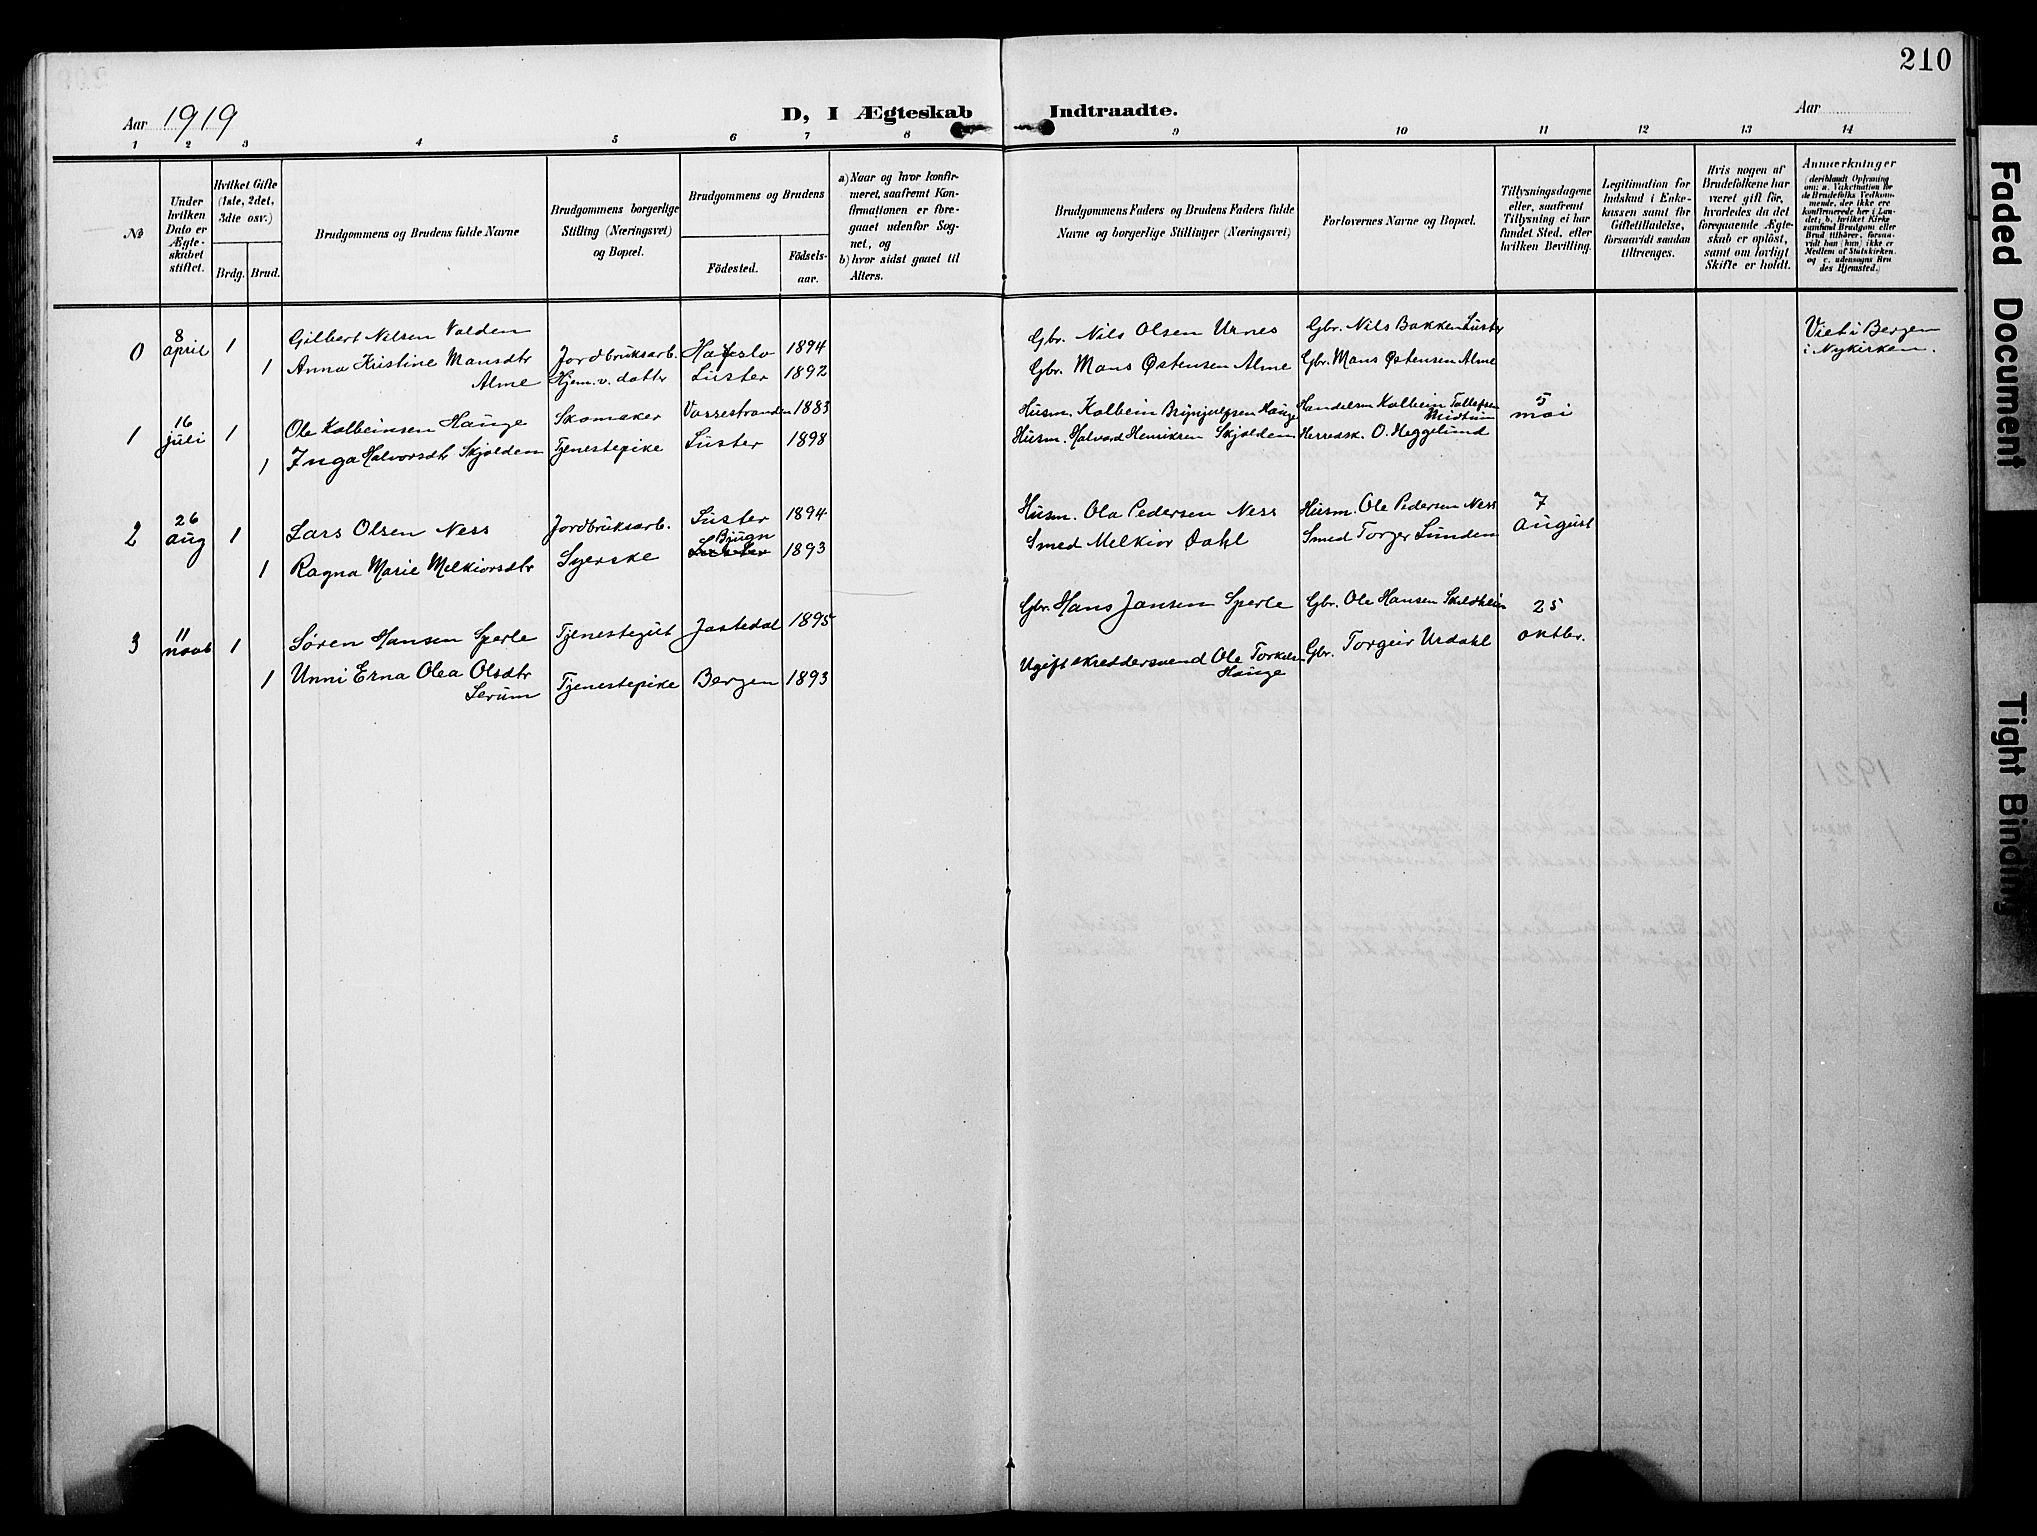 210
Aar 1919
D, I Ægteskab Indtraadte.
Aar
1 2 3 4 5 6 7 8 9 10 11 12 13 14
No
Under hvilken Dato er Ægteskabet stiftet.
Hvilket Gifte (1ste, 2det, 3die osv.)
Brdg. Brud.
Brudgommens og Brudens fulde Navne
Brudgommens borgerlige Stilling (Næringsvei) og Bopæl.
Brudgommens og Brudens
Fødested. Fødsels-aar.
a) Naar og hvor konfirmeret, saafremt Konfirmationen er foregaaet udenfor Sognet, og
b) hvor sidst gaaet til Alters.
Brudgommens Faders og Brudens Faders fulde Navne og borgerlige Stillinger (Næringsvei)
Forlovernes Navne og Bopæl.
Tillysningsdagene eller, saafremt Tillysning ei har fundet Sted, efter hvilken Bevilling.
Legitimation for Indskud i Enkekassen samt for Giftetilladelse, forsaavidt saadan tiltrænges.
Hvis nogen af Brudefolkene har været gift før, hvorledes da det foregaaende Ægteskab er opløst, samt om lovligt Skifte er holdt.
Anmerkninger (deriblandt Oplysning om: a. Vakcination for de Brudefolks Vedkommende, der ikke ere konfirmerede her i Landet; b. hvilket Kirkesamfund Brudgom eller Brud tilhører, forsaavidt han (hun) ikke er Medlem af Statskirken, og c. udensogns Brudes Hjemsted.)
0 8 april 1 Gilbert Nilsen Valden Jordbruksarb. Hafslo 1894 Gbr. Nils Olsen Urnes Gbr. Nils Bakken Luster Viet i Bergen i Nykirken.
1 Anna Kristine Mansdtr Alme Hjem.v. datter Luster 1892 Gbr. Mons Østensen Alme Gbr. Mons Østensen Alme
1 16 juli 1 Ole Kolbeinsen Hauge Skomaker Vossestranden 1883 Husm. Kolbein Brynjulfsen Hauge Handelsm Kolbein Tollefsen Midtun 5 mai
1 Inga Halvorsdtr Skjolden Tjenestepike Luster 1898 Husm. Halvard Henriksen Skjolden Herredsk. O. Heggelund
2 26 aug 1 Lars Olsen Ness Jordbruksarb. Luster 1894 Husm. Ola Pedersen Ness Husm. Ole Pedersen Ness 7 august
1 Ragna Marie Melkiorsdtr Syerske Bjugn 1893 Smed Melkior Dahl Smed Torger Lunden
3 11 novb 1 Søren Hansen Sperle Tjenestegut Jostedal 1895 Gbr. Hans Jansen Sperle Gbr. Ole Hansen Skildheim 25 oktbr.
1 Unni Erna Olea Olsdtr Serum Tjenestepike Bergen 1893 Ugift skreddersvend Ole Torkelsen Hauge Gbr. Torgeir Urdahl
Faded Document
Tight Binding